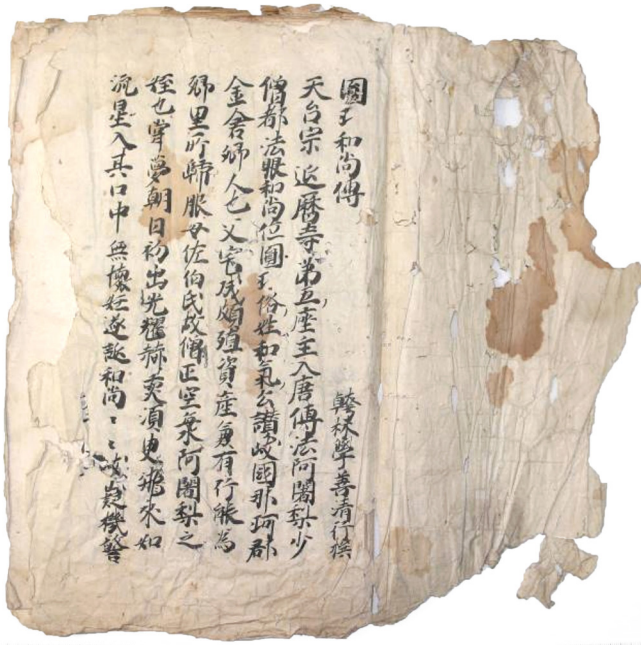 圓珎和尚傳
翰林學善清行撰
天台宗延曆寺第五座主入唐傳法阿闍梨少
僧都法眼和尚位圓珎俗姓和氣公讃岐國那珂郡
金舍郷人也父宅成頗殖資産兼有行能為
郷里所歸服母佐伯氏故僧正空海阿闍梨之
姪也甞夢朝日初出光耀赫奕須臾飛來如
流星入其口中無懷妊遂誕和尚〻〻岐嶷機警